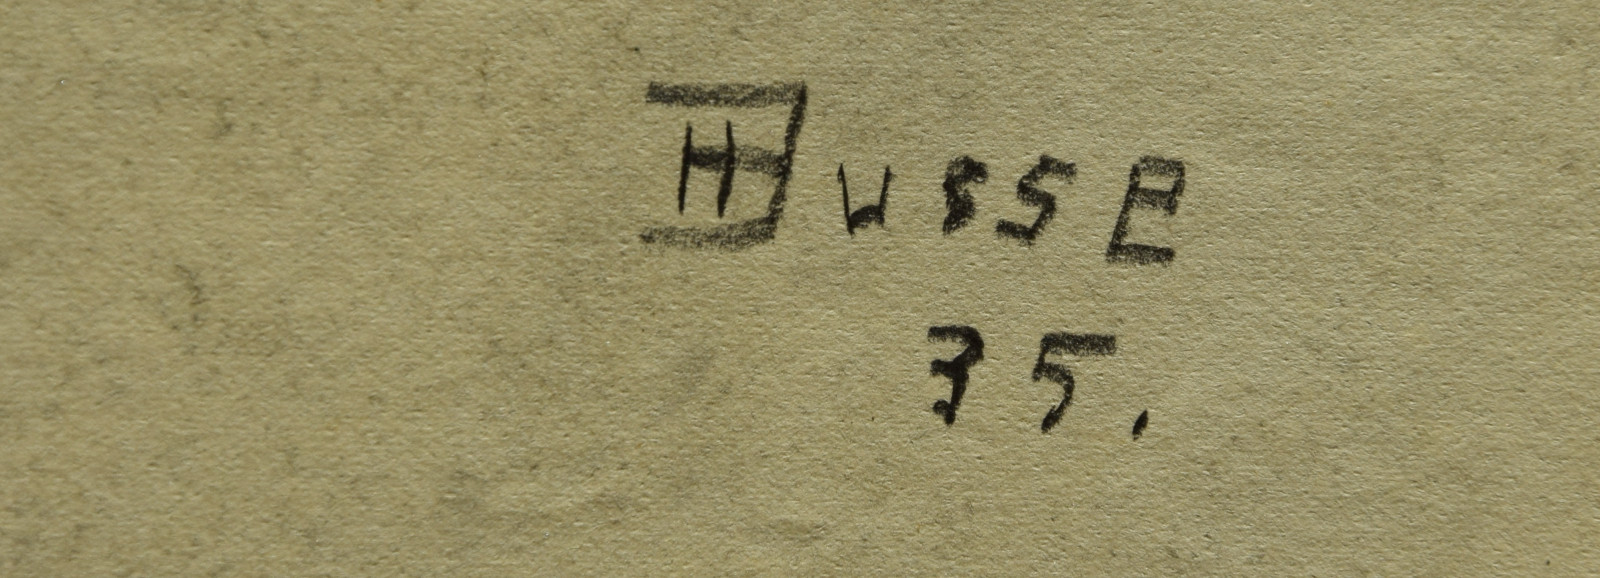 Husse
35.